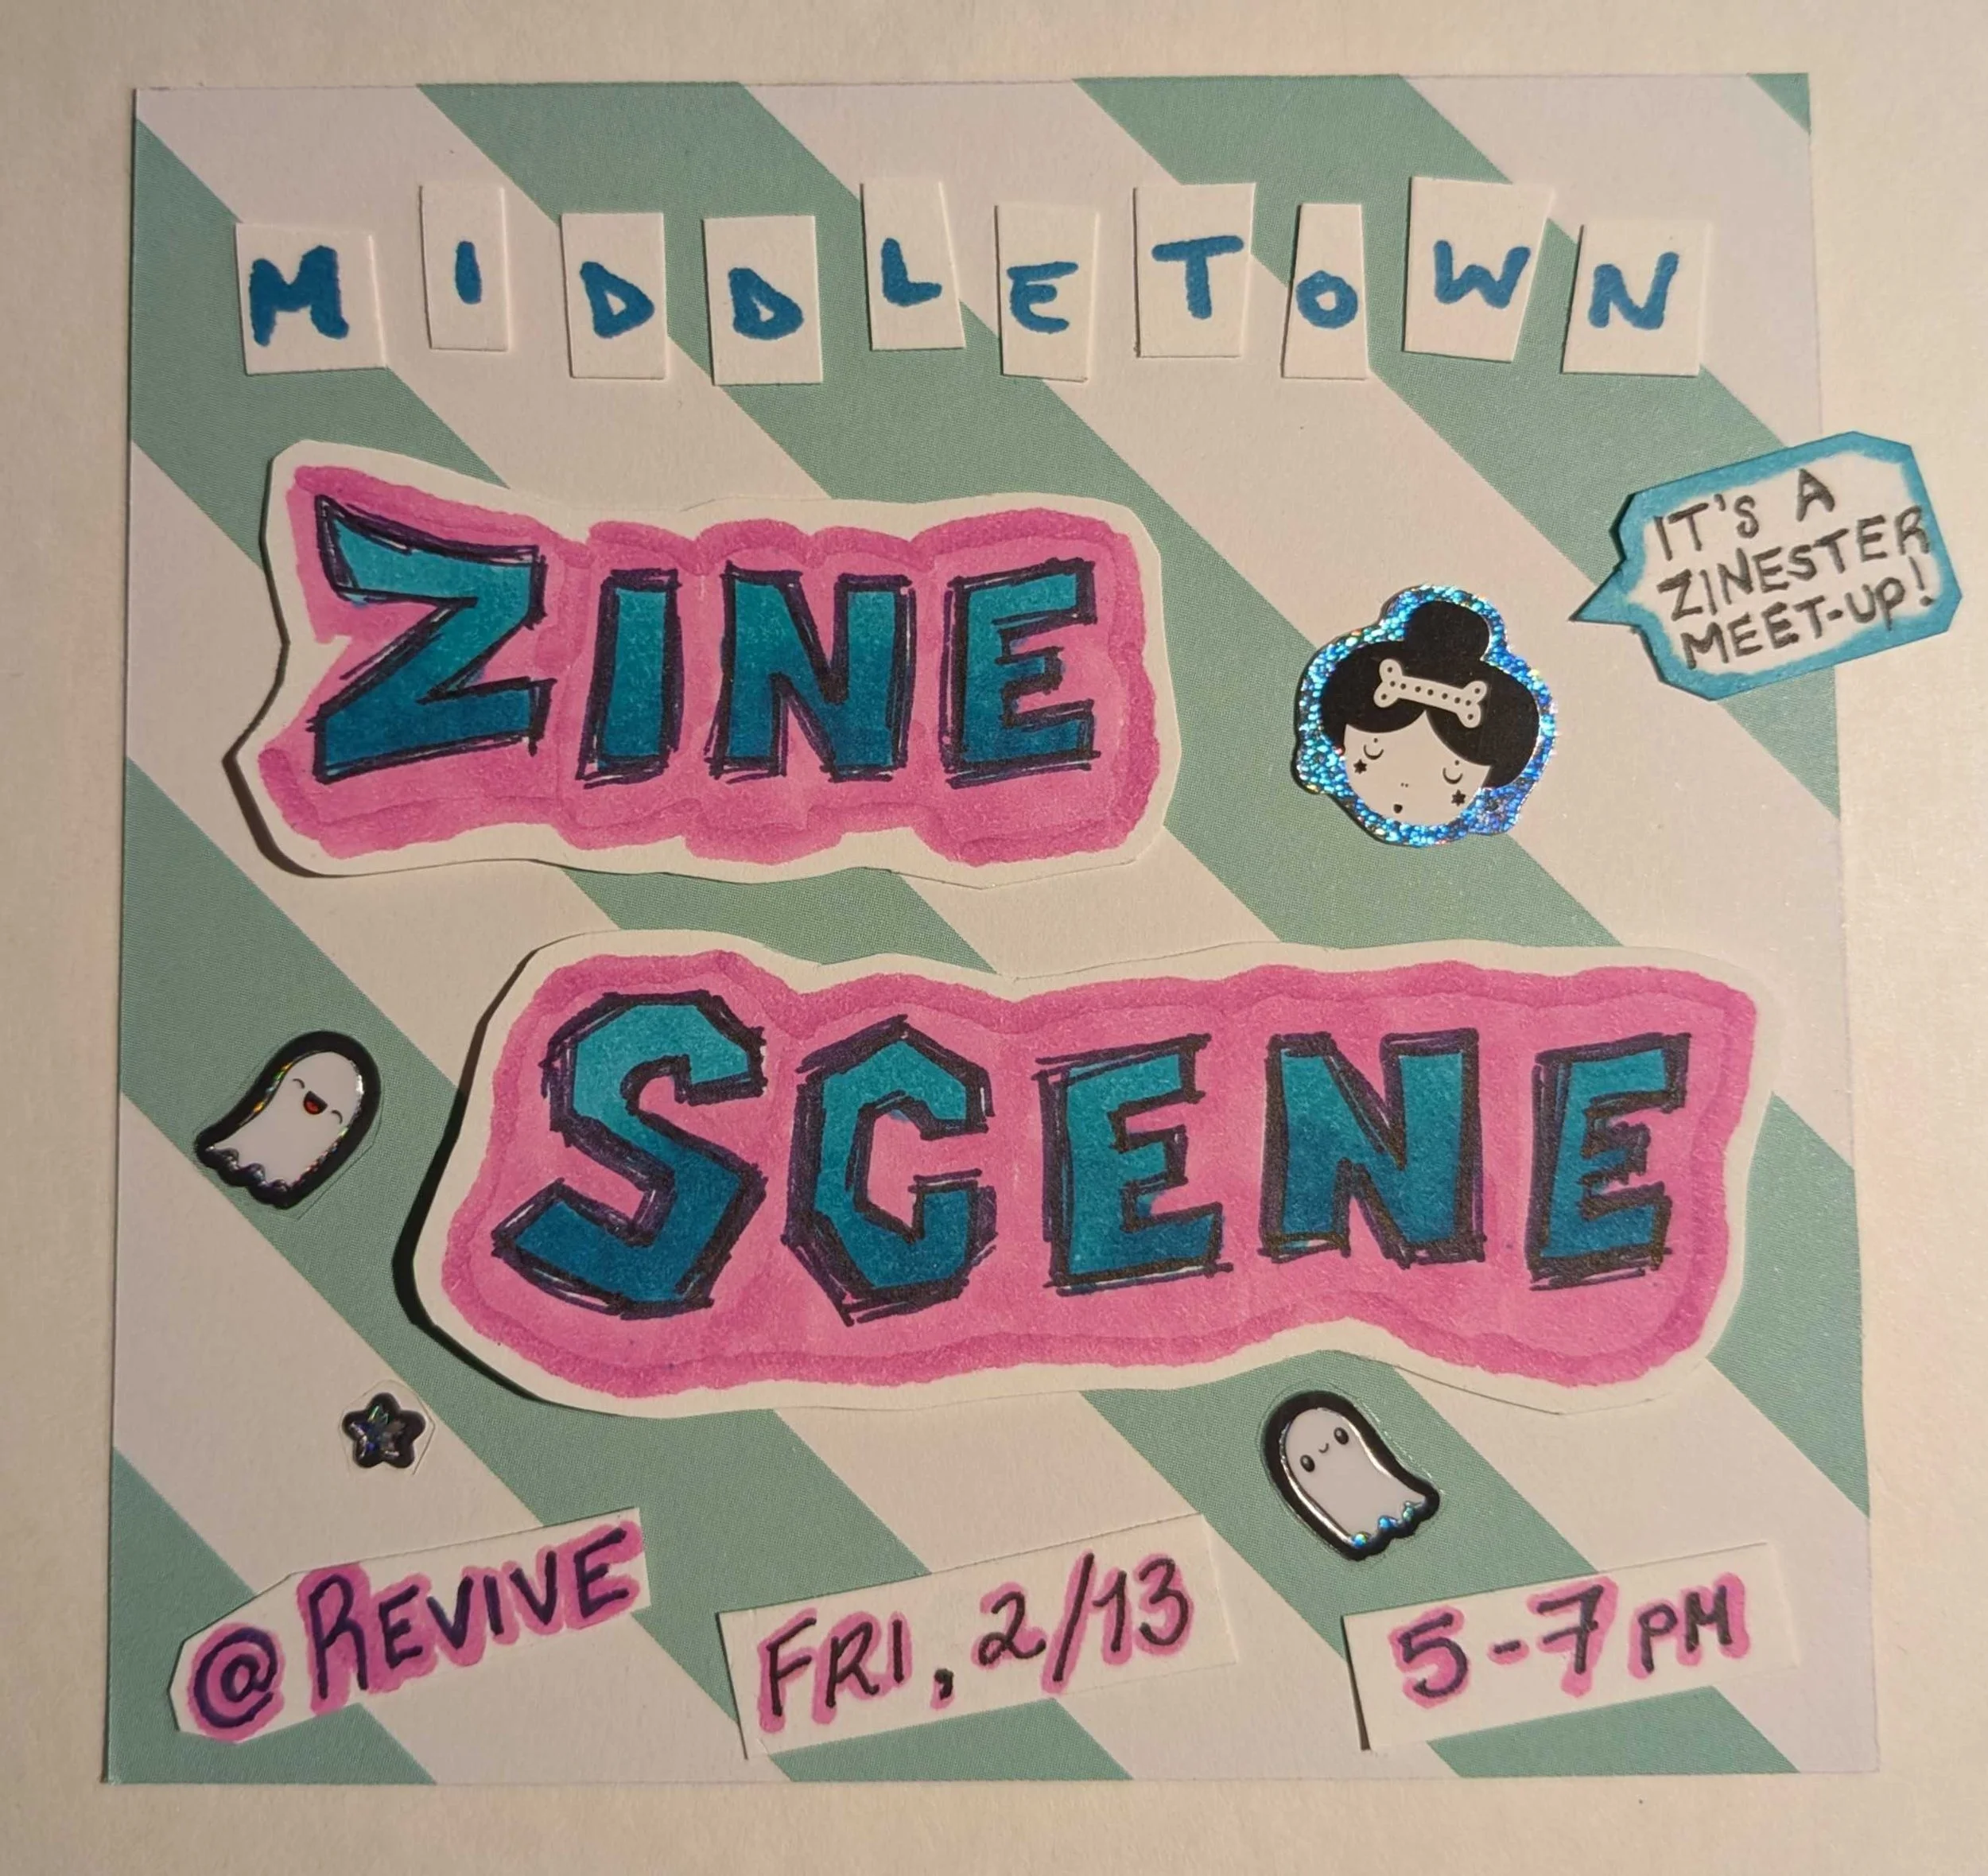 MIDDLETOWN
ZINE
IT'S A
ZINESTER
MEET-UP!
SCENE
@ REVIVE
FRI, 2/13
5-7 PM